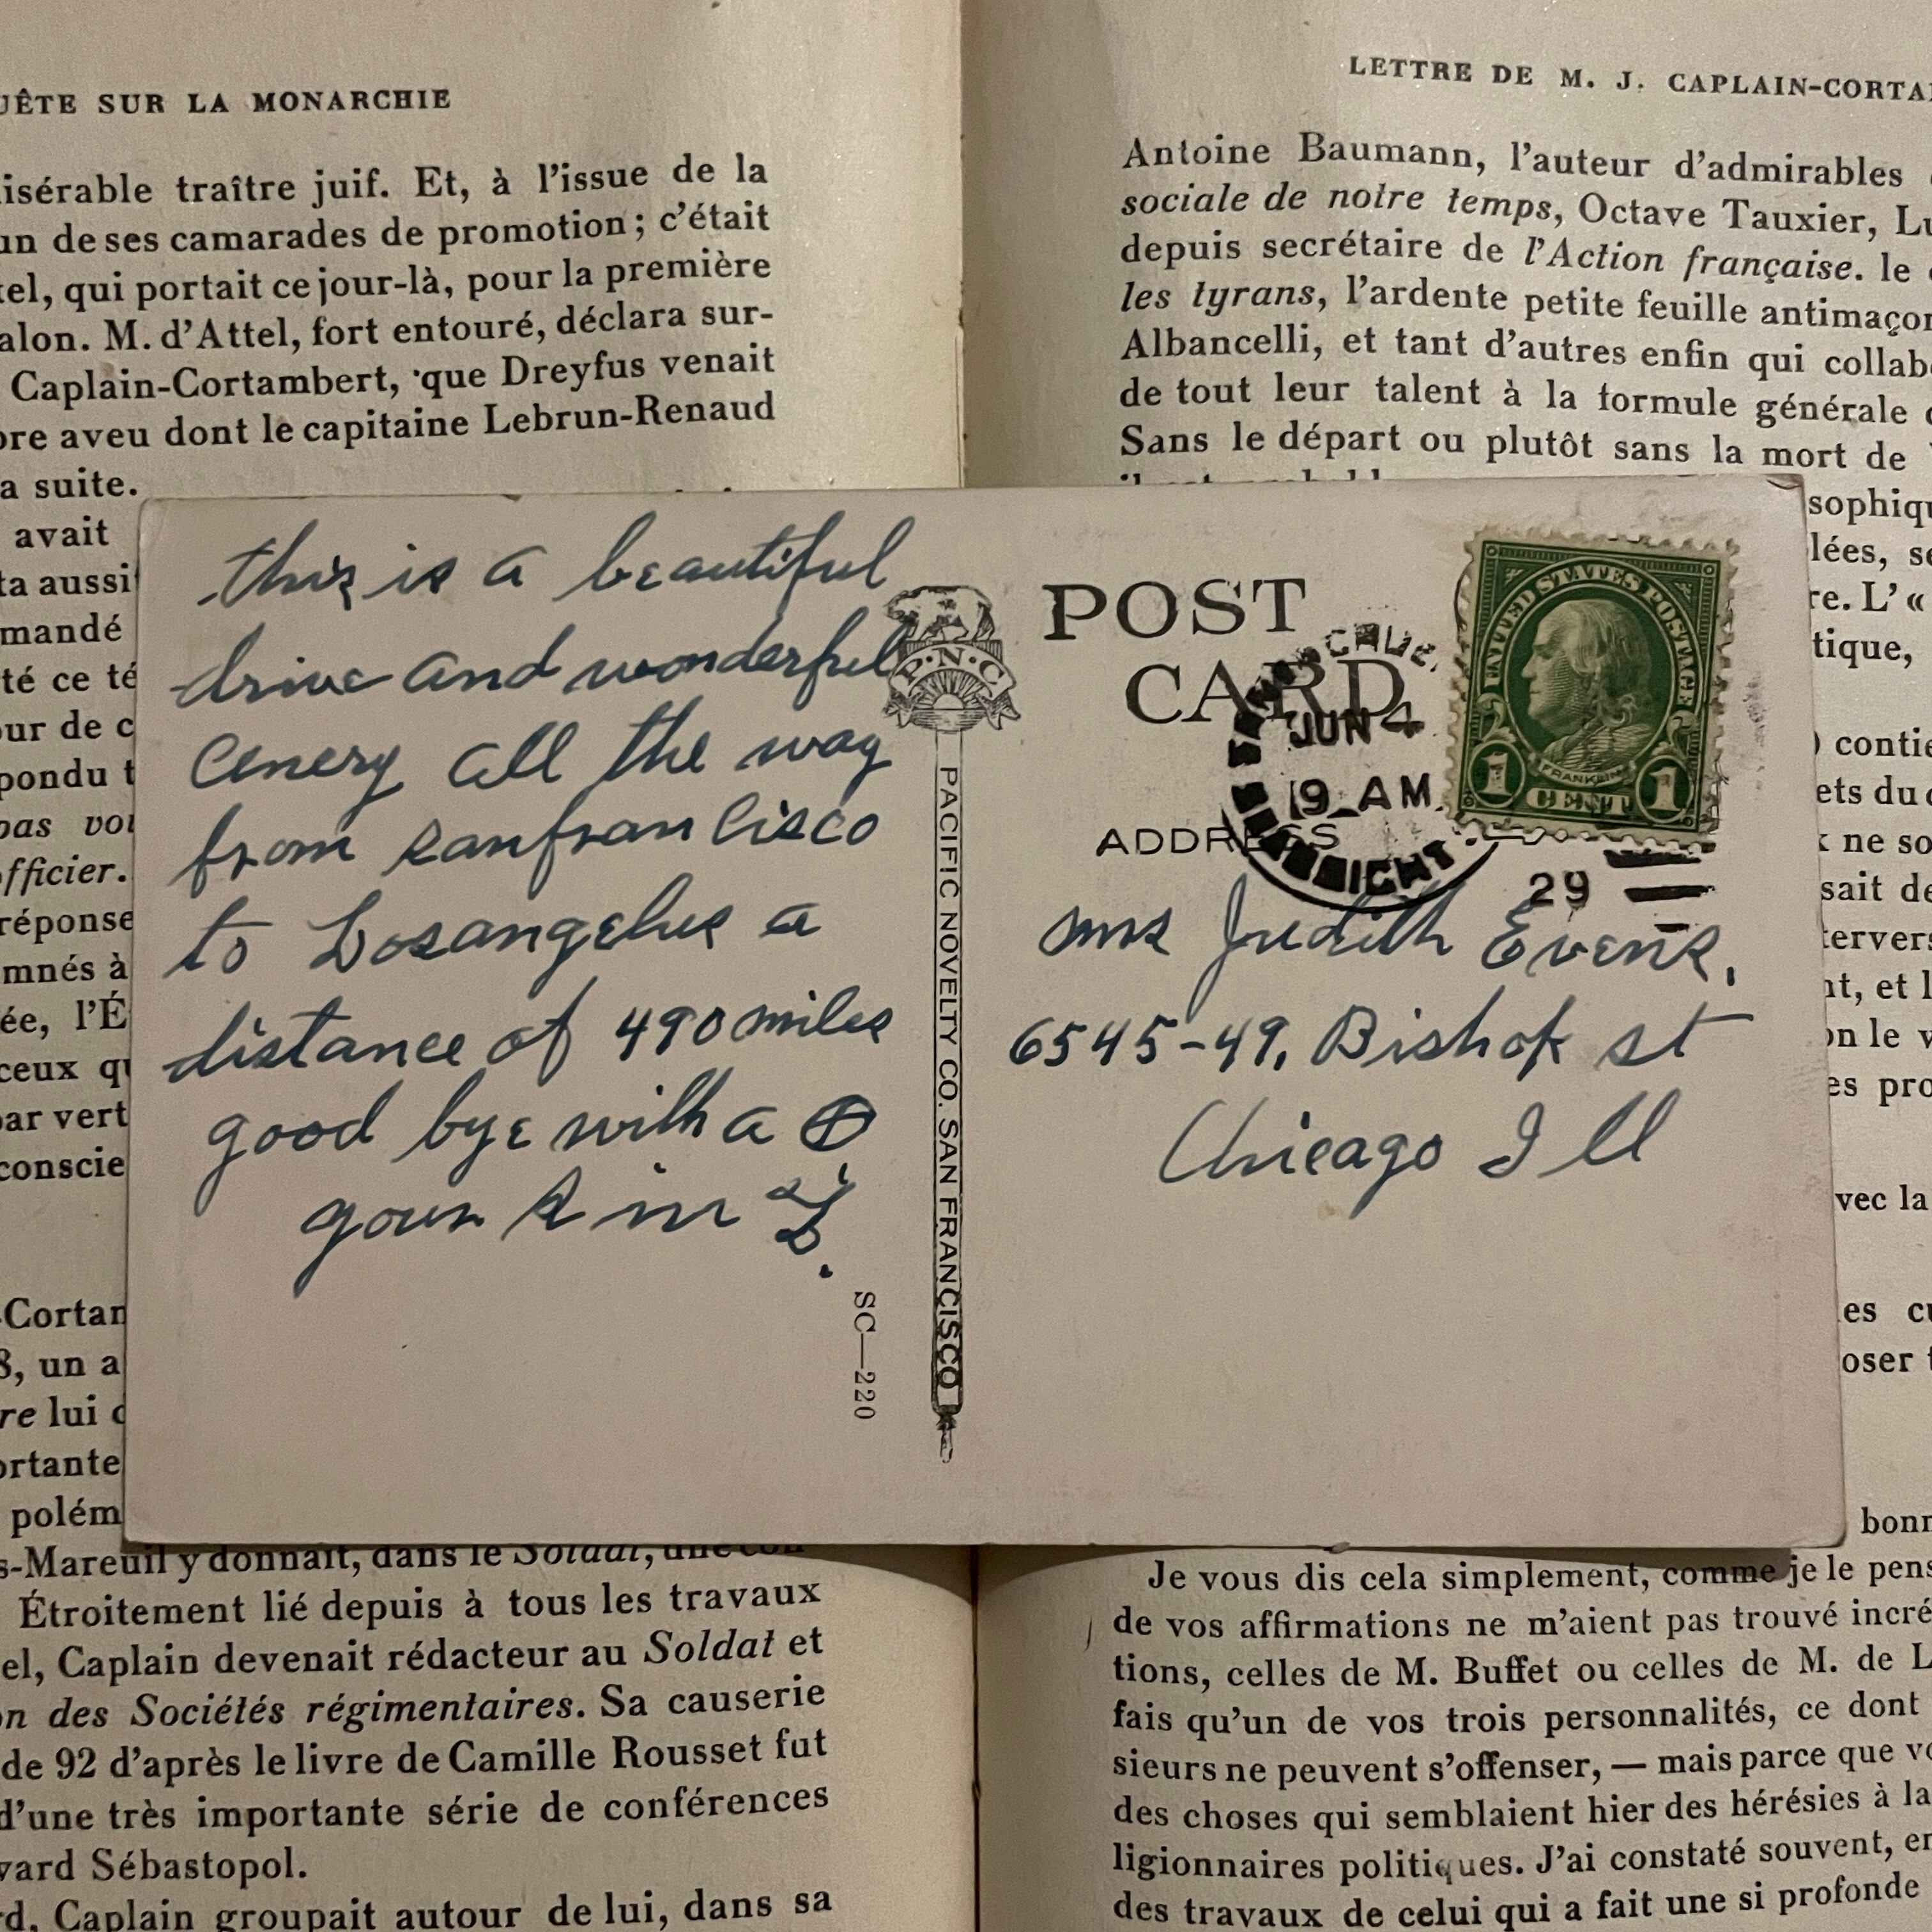 UÊTE SUR LA MONARCHIE
isérable traître juif. Et, à l'issue de la
un de ses camarades de promotion ; c'était
tel, qui portait ce jour-là, pour la première
alon. M. d'Attel, fort entouré, déclara sur-
Caplain-Cortambert, que Dreyfus venait
pre aveu dont le capitaine Lebrun-Renaud
a suite.
avait
ta aussi
mandé
té ce té
our de c
pondu t
pas vou
officier.
réponse
mnés à
ée, l'É
ceux qu
par vert
conscie
-Cortam
8, un a
re lui d
ortante
polém
s-Mareuil y donnait, dans le Soldat, une con
Étroitement lié depuis à tous les travaux
el, Caplain devenait rédacteur au Soldat et
on des Sociétés régimentaires. Sa causerie
de 92 d'après le livre de Camille Rousset fut
d'une très importante série de conférences
vard Sébastopol.
rd, Caplain groupait autour de lui, dans sa
LETTRE DE M. J. CAPLAIN-CORTA
Antoine Baumann, l'auteur d'admirables
sociale de notre temps, Octave Tauxier, Lu
depuis secrétaire de l'Action française. le
les tyrans, l'ardente petite feuille antimaçon
Albancelli, et tant d'autres enfin qui collab
de tout leur talent à la formule générale
Sans le départ ou plutôt sans la mort de
sophiqu
lées, se
re. L' «
tique,
) contie
ets du
x ne so
sait de
tervers
nt, et l
on le v
es pro
vec la
es cu
oser
bonn
Je vous dis cela simplement, comme je le pens
de vos affirmations ne m'aient pas trouvé incré
tions, celles de M. Buffet ou celles de M. de L
fais qu'un de vos trois personnalités, ce dont
sieurs ne peuvent s'offenser, — mais parce que vo
des choses qui semblaient hier des hérésies à la
ligionnaires politiques. J'ai constaté souvent, en
des travaux de celui qui a fait une si profonde
this is a beautiful
drive and wonderful
cenery all the way
from sanfrancisco
to Losangelus a
distance of 490 miles
good bye with a
yours Sin L.
SC—220
P.N.C
PACIFIC NOVELTY CO. SAN FRANCISCO
POST
CARD
ADDRESS
JUN 4
9 AM
29
UNITED STATES POSTAGE
FRANKLIN
1 CENT 1
mrs Judith Evens,
6545-49, Bishop st
Chicago Ill